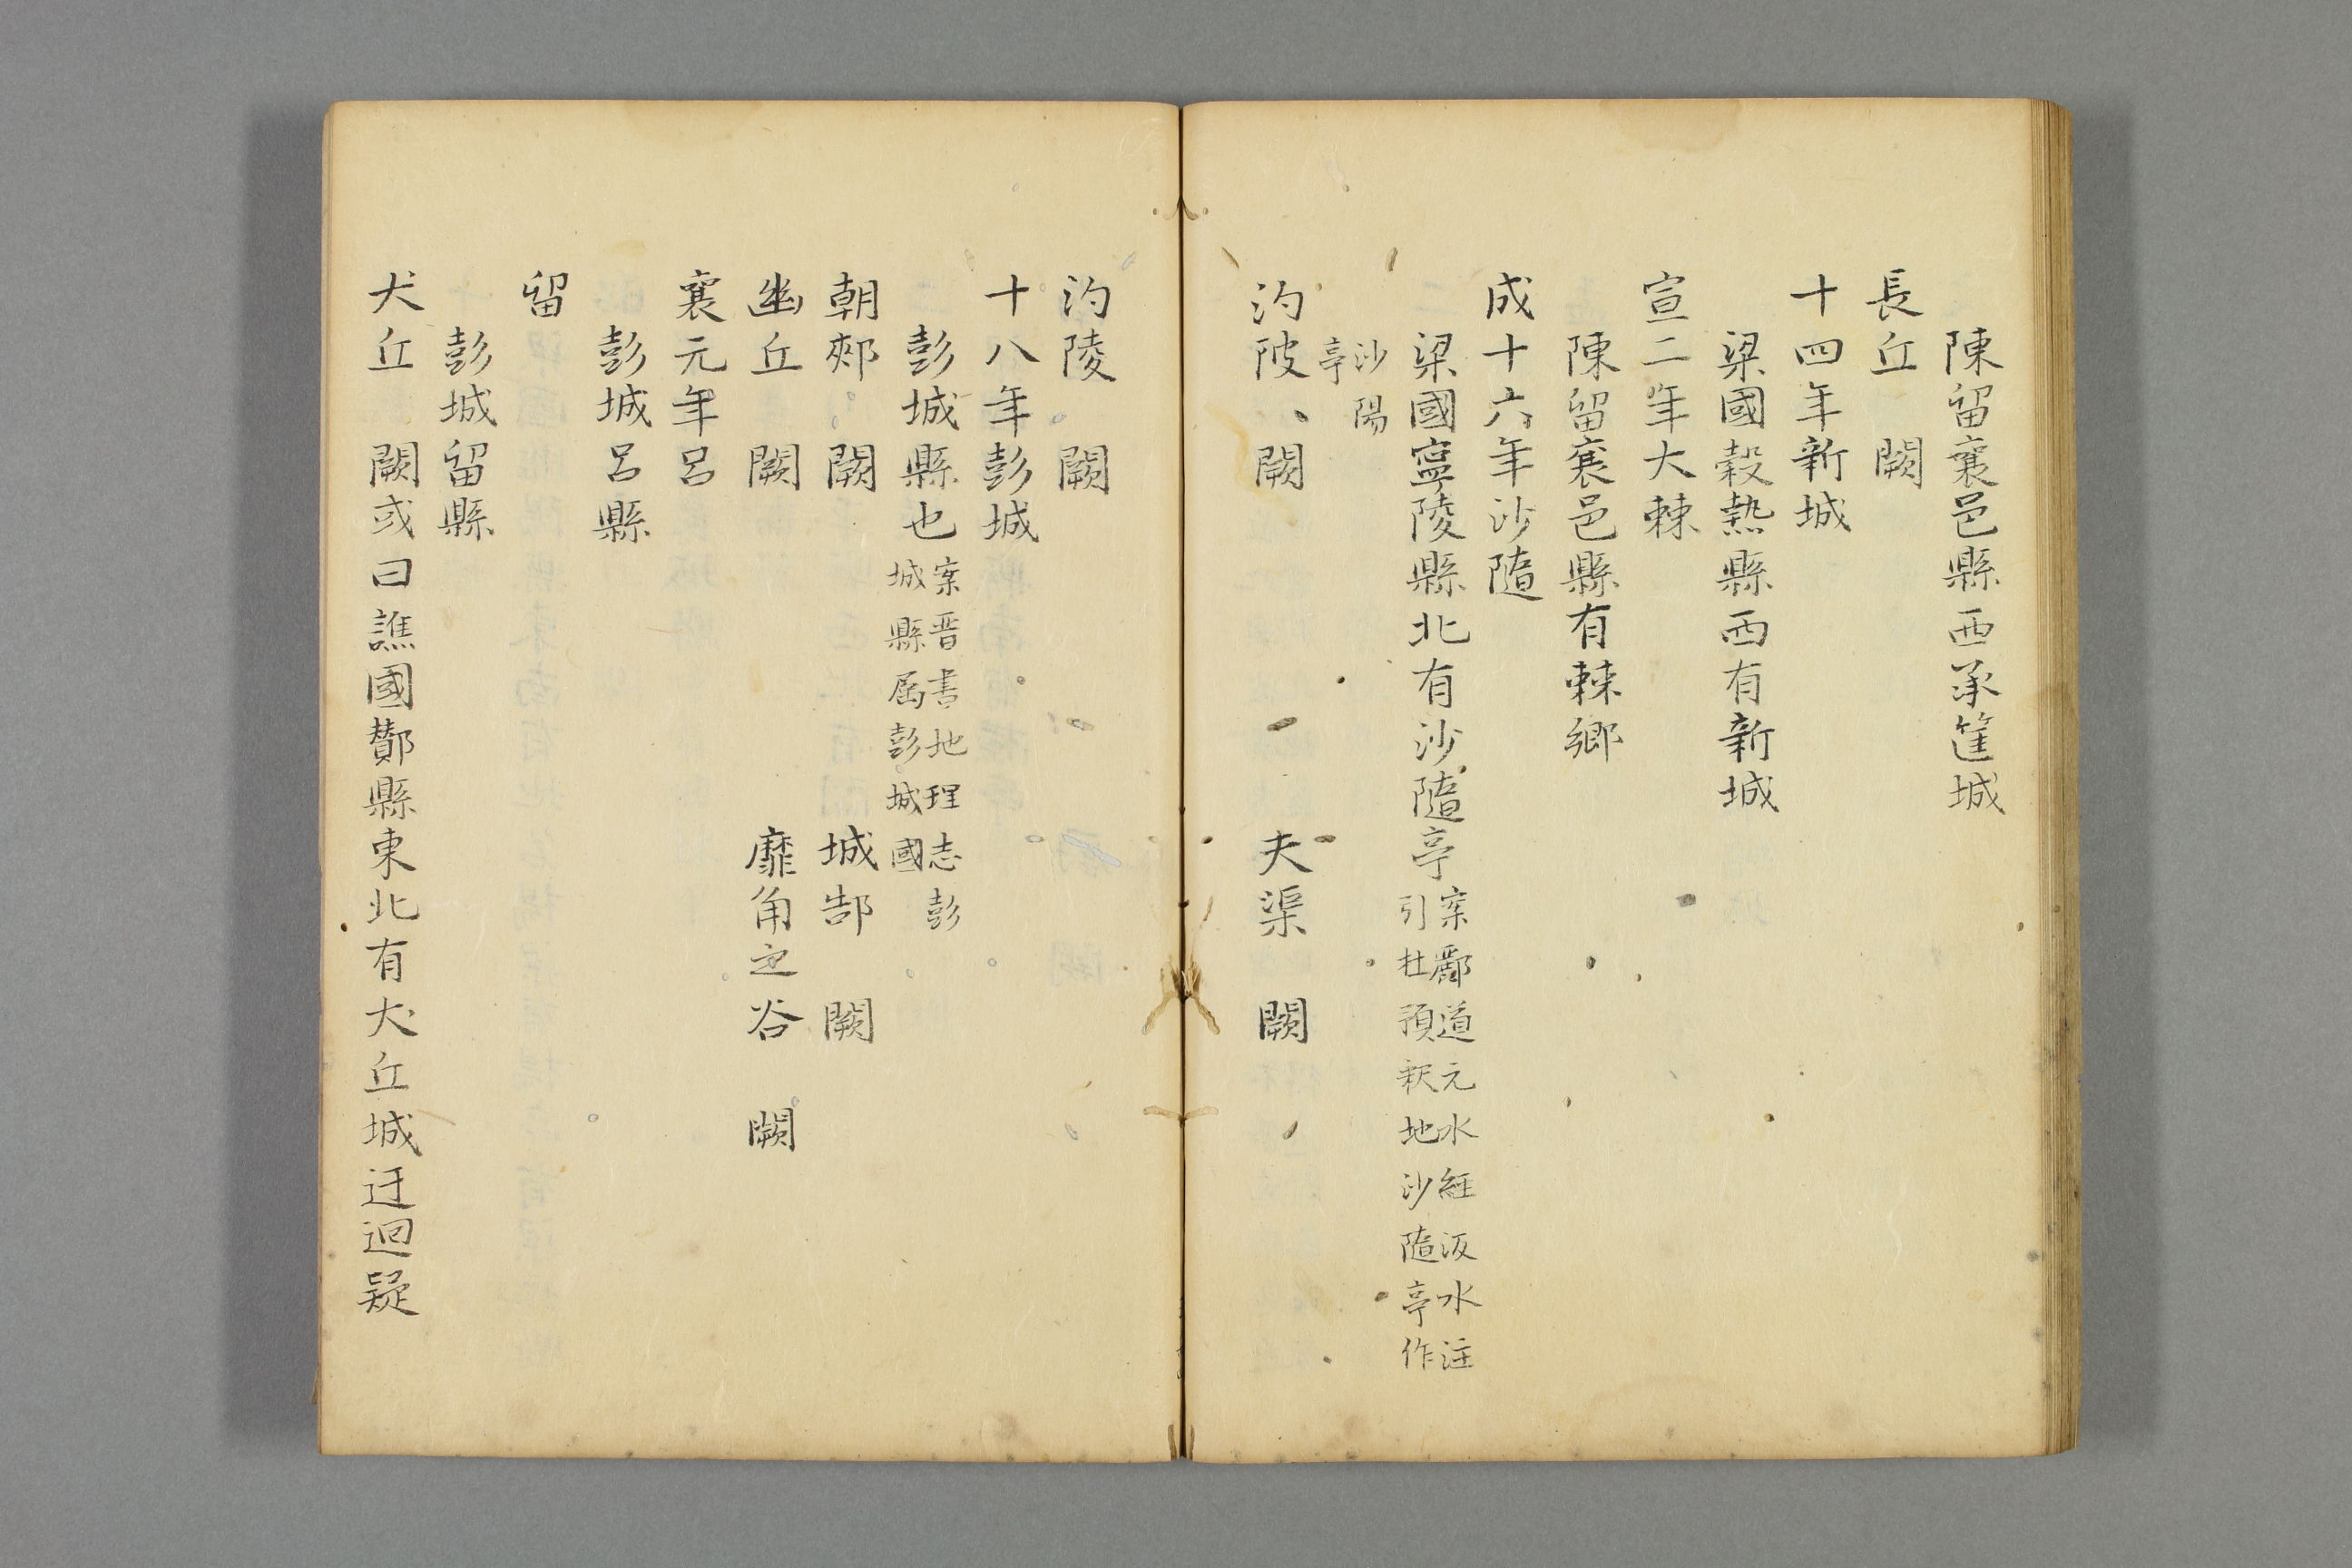 陳留襄邑縣西承筐城
長丘　闕
十四年新城
梁國穀熟縣西有新城
宣二年大棘
陳留襄邑縣有棘鄉
成十六年沙隨
梁國寧陵縣北有沙隨亭
案酈道元水經汳水注
引杜預釈地沙隨亭作
沙陽
亭
汋陂、闕　夫渠　闕
汋陵　闕
十八年彭城
彭城縣也
案晋書地理志彭
城縣属彭城國
朝郟　闕　城郜　闕
幽丘　闕　靡角之谷　闕
襄元年呂
彭城呂縣
留
彭城留縣
犬丘　闕或曰譙國酇縣東北有犬丘城迂迴疑